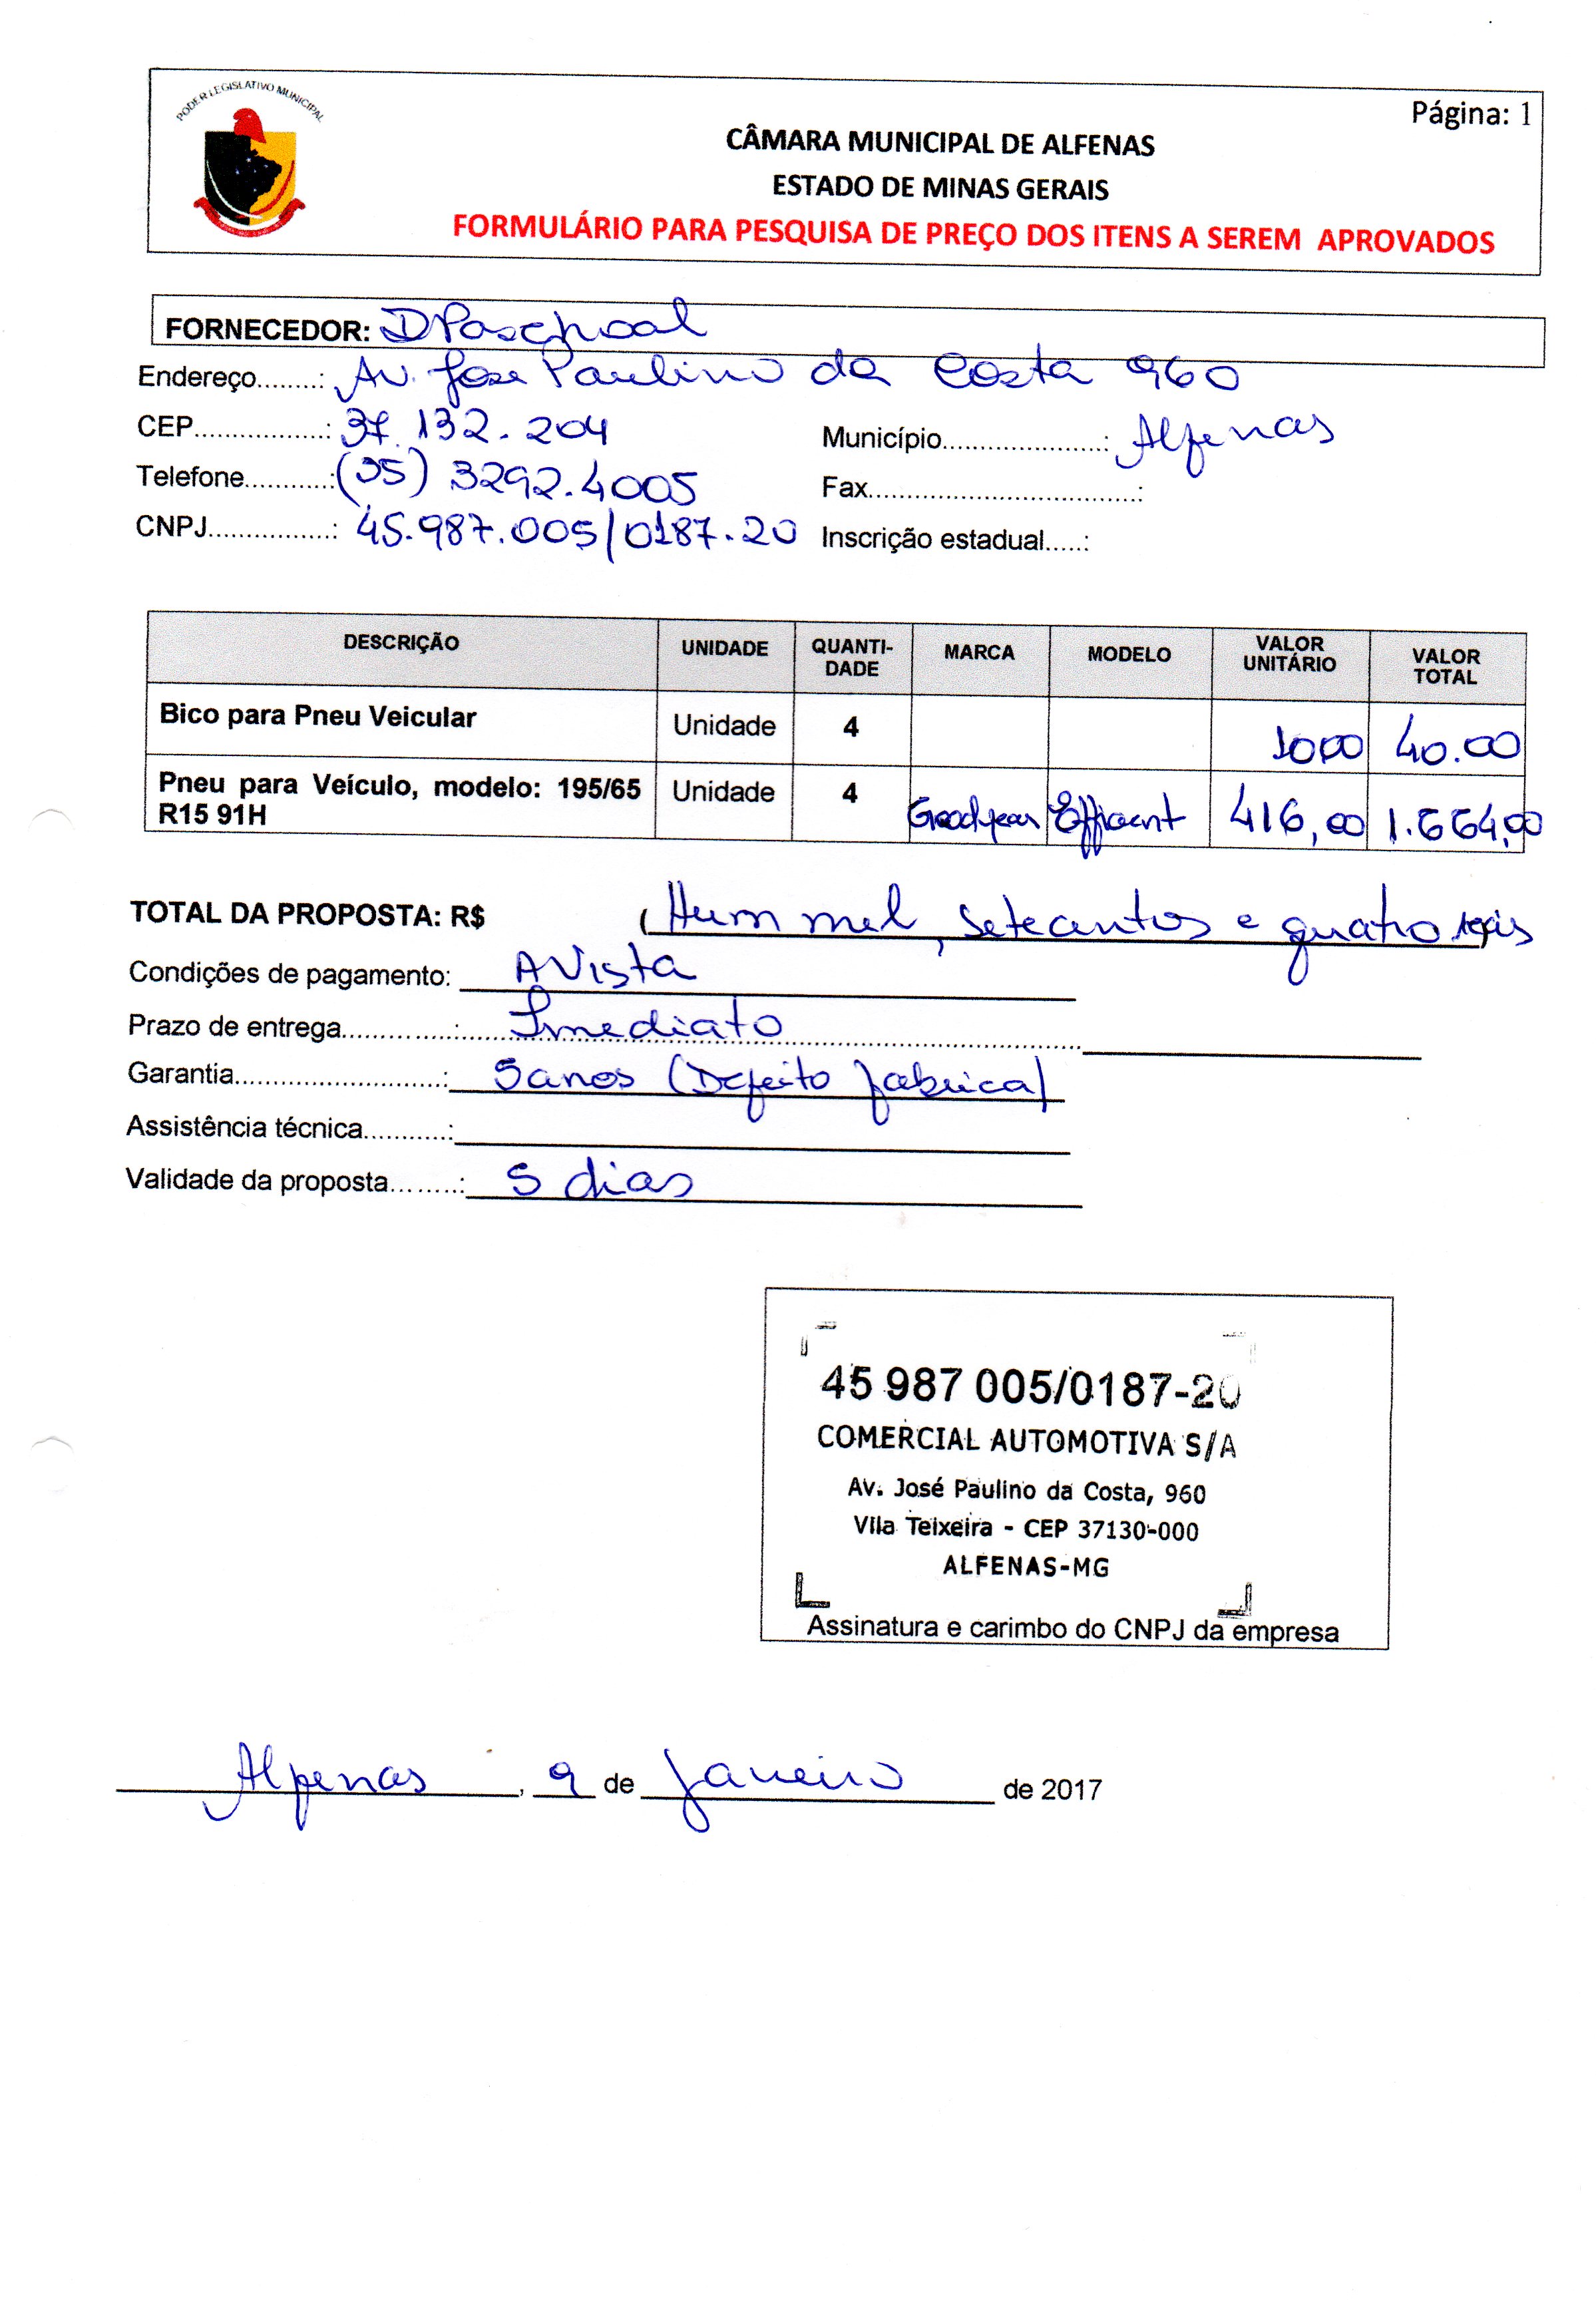 PODER LEGISLATIVO MUNICIPAL
Página: 1
CÂMARA MUNICIPAL DE ALFENAS
ESTADO DE MINAS GERAIS
FORMULÁRIO PARA PESQUISA DE PREÇO DOS ITENS A SEREM APROVADOS
FORNECEDOR: DPaschoal
Endereço........: Av. Jose Paulino da Costa 960
CEP.................: 37.132.204 Município.....................: Alfenas
Telefone...........: (35) 3292.4005 Fax...................................:
CNPJ................: 45.987.005/0187.20 Inscrição estadual.....:
DESCRIÇÃO UNIDADE QUANTI-DADE MARCA MODELO VALOR UNITÁRIO VALOR TOTAL
Bico para Pneu Veicular Unidade 4 1000 40.00
Pneu para Veículo, modelo: 195/65 R15 91H Unidade 4 Goodyear 416,00 1.664,00
TOTAL DA PROPOSTA: R$ (Hum mil, setecentos e quatro reais
Condições de pagamento: A Vista
Prazo de entrega...............: Imediato
Garantia............................: 5 anos (Defeito fabrica)
Assistência técnica...........:
Validade da proposta........: 5 dias
45 987 005/0187-20
COMERCIAL AUTOMOTIVA S/A
Av. José Paulino da Costa, 960
Vila Teixeira - CEP 37130-000
ALFENAS-MG
Assinatura e carimbo do CNPJ da empresa
Alfenas, 9 de Janeiro de 2017